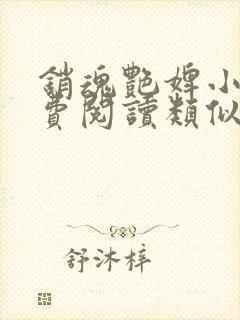 銷魂艷婢小
費閱讀類似
舒沐梓